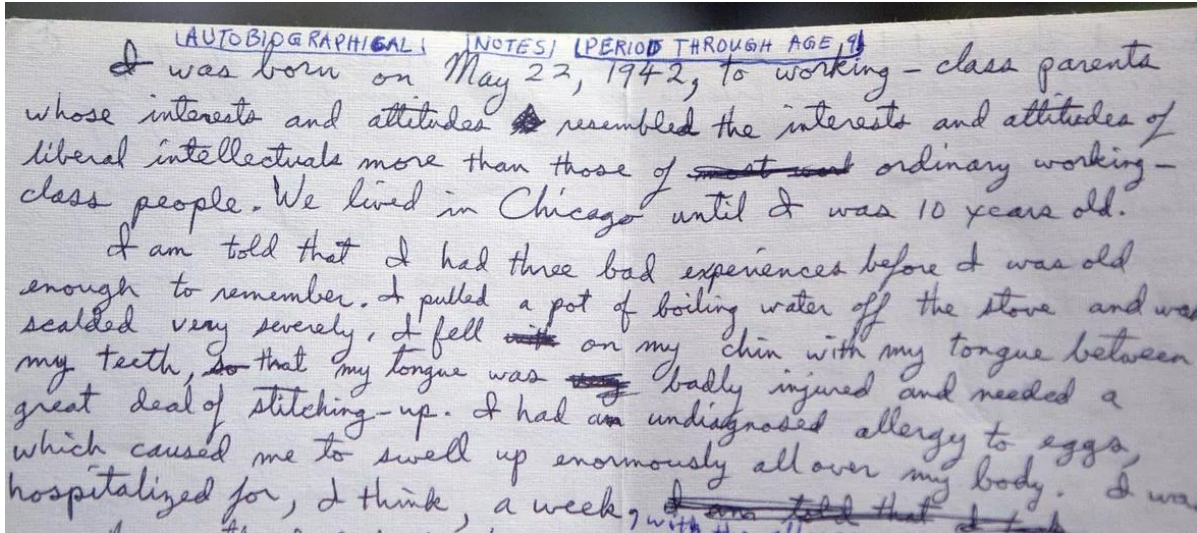 AUTOBIOGRAPHICAL NOTES PERIOD THROUGH AGE 9
I was born on May 22, 1942, to working-class parents
whose interests and attitudes resembled the interests and attitudes of
liberal intellectuals more than those of ordinary working-
class people. We lived in Chicago until I was 10 years old.
I am told that I had three bad experiences before I was old
enough to remember. I pulled a pot of boiling water off the stove and was
scalded very severely, I fell on my chin with my tongue between
my teeth, so that my tongue was badly injured and needed a
great deal of stitching-up. I had an undiagnosed allergy to eggs,
which caused me to swell up enormously all over my body. I was
hospitalized for, I think, a week, I am told that I